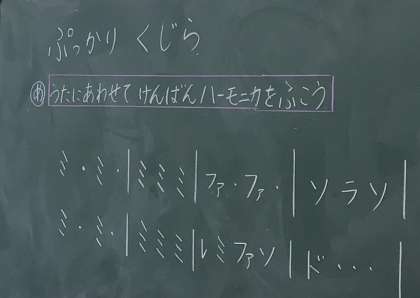 ぷっかり くじら
め うたにあわせて けんばんハーモニカをふこう
ミ・ミ・|ミミミ|ファ・ファ・|ソラソ|
ミ・ミ・|ミミミ|レミファソ|ド・・・|